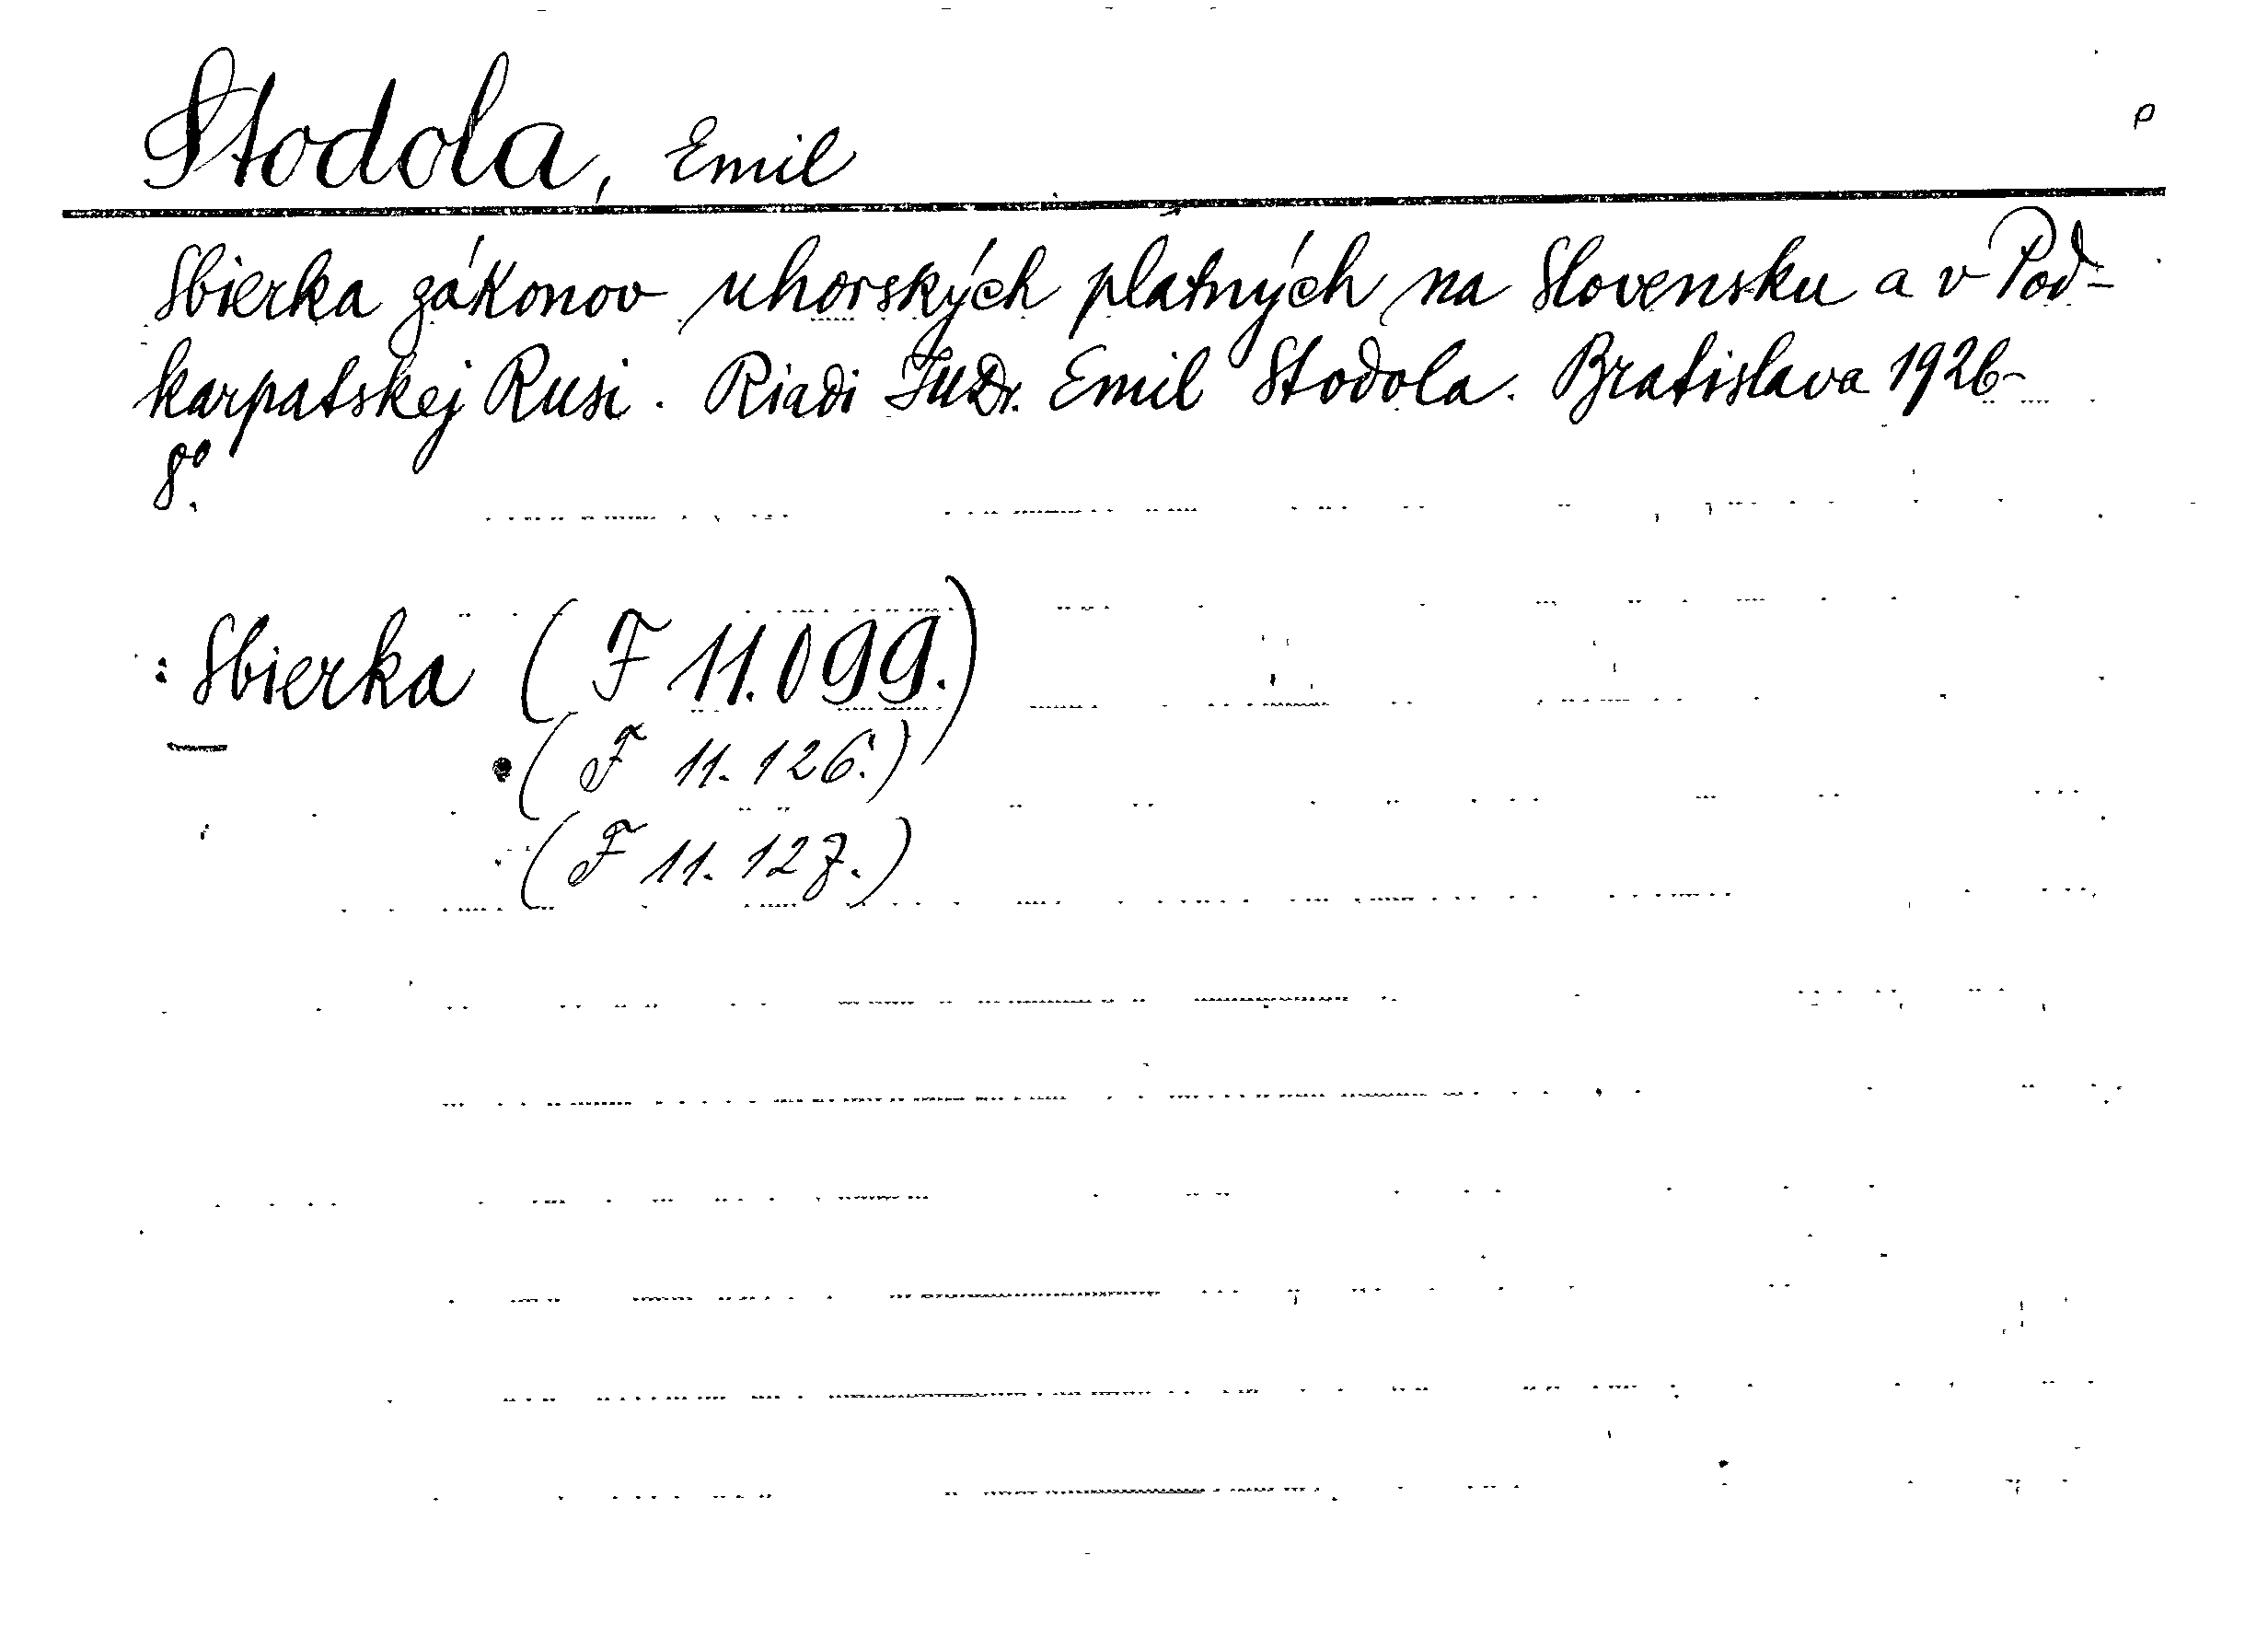 Stodola, Emil
p
Sbierka zákonov uhorských platných na Slovensku a v Pod-
karpatskej Rusi. Riadi JUDr. Emil Stodola. Bratislava 1926-
8°.
: Sbierka (F 11.099.)
(F 11.126.)
(F 11.127.)